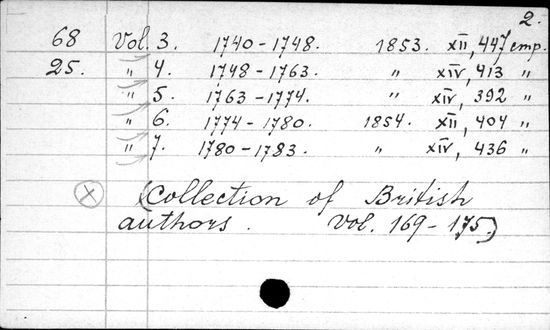 2.
68 Vol. 3. 1740-1748. 1853. XII, 447 cmp.
25. " 4. 1748-1763. " XIV, 413 "
" 5. 1763-1774. " XIV, 392 "
" 6. 1774-1780. 1854. XII, 404 "
" 7. 1780-1783. " XIV, 436 "
(Collection of British
authors. Vol. 169-175.)